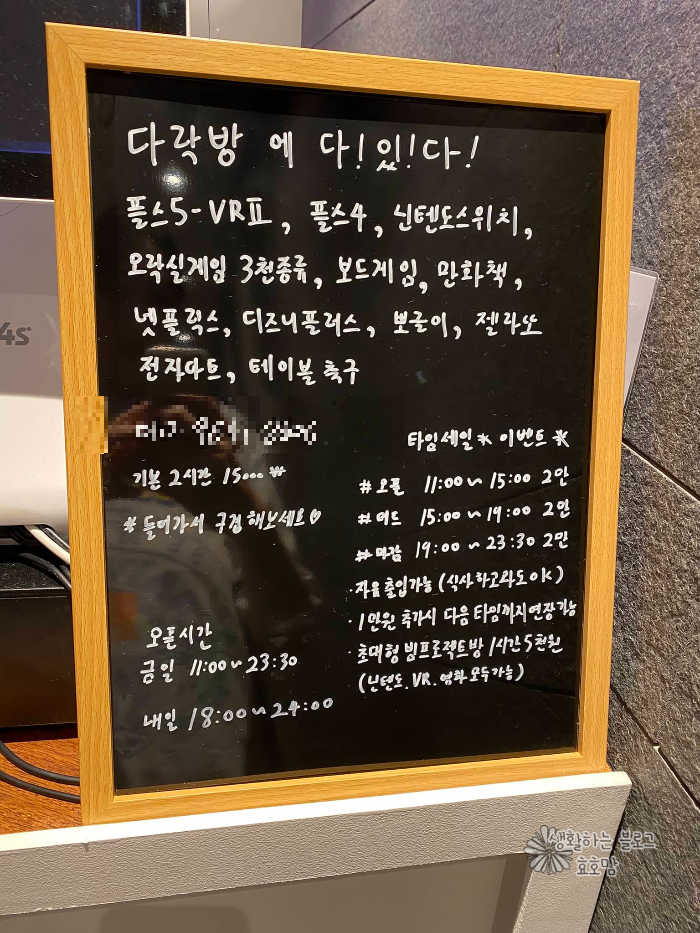 다락방 에 다!있!다!
플스5-VRⅡ, 플스4, 닌텐도스위치,
오락실게임 3천종류, 보드게임, 만화책,
넷플릭스, 디즈니플러스, 뽀글이, 젤라또
전자다트, 테이블 축구
기본 2시간 15000 #
* 들어가서 구경 해보세요♡
타임세일* 이벤트*
#오픈 11:00~15:00 2만
#미드 15:00~19:00 2만
#마감 19:00~23:30 2만
·자유출입가능 (식사하고와도 OK)
·1만원 추가시 다음 타임까지 연장가능
·초대형 빔프로젝트방 1시간 5천원
(닌텐도.VR.영화 모두가능)
오픈시간
금일 11:00~23:30
내일 18:00~24:00
4s
생활하는 블로그
효호맘